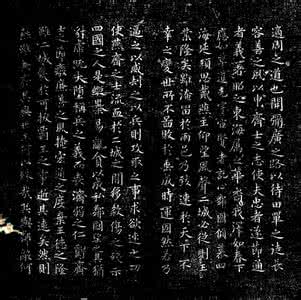 適周之道也開弥廣之路以待田單之徒長
容善之風以申齊士之志使夫忠者遂節通
者義著昭之東海属之華裔我澤如春下
應如草道光宇宙賢者託心鄰國傾慕四
海延頸思戴燕主仰望風聲二城必從則王
業隆矣雖淹留於兩邑乃致速於天下不
幸之變世所不圖敗於垂成時運固然若乃
逼之以威劫之以兵則攻取之事求欲速之功
使燕齊之士流血於二城之間侈殺傷之殘示
四國之人是縱暴易乱貪以成私鄰國望之其猶
豺虎既大墮稱兵之義而喪濟弱之仁虧齊
士之節廢廉善之風掩宏通之度棄王德之隆
雖二城幾於可拔霸王之事逝其遠矣然則
燕雖兼齊其與世主何以殊哉其與鄰敵何